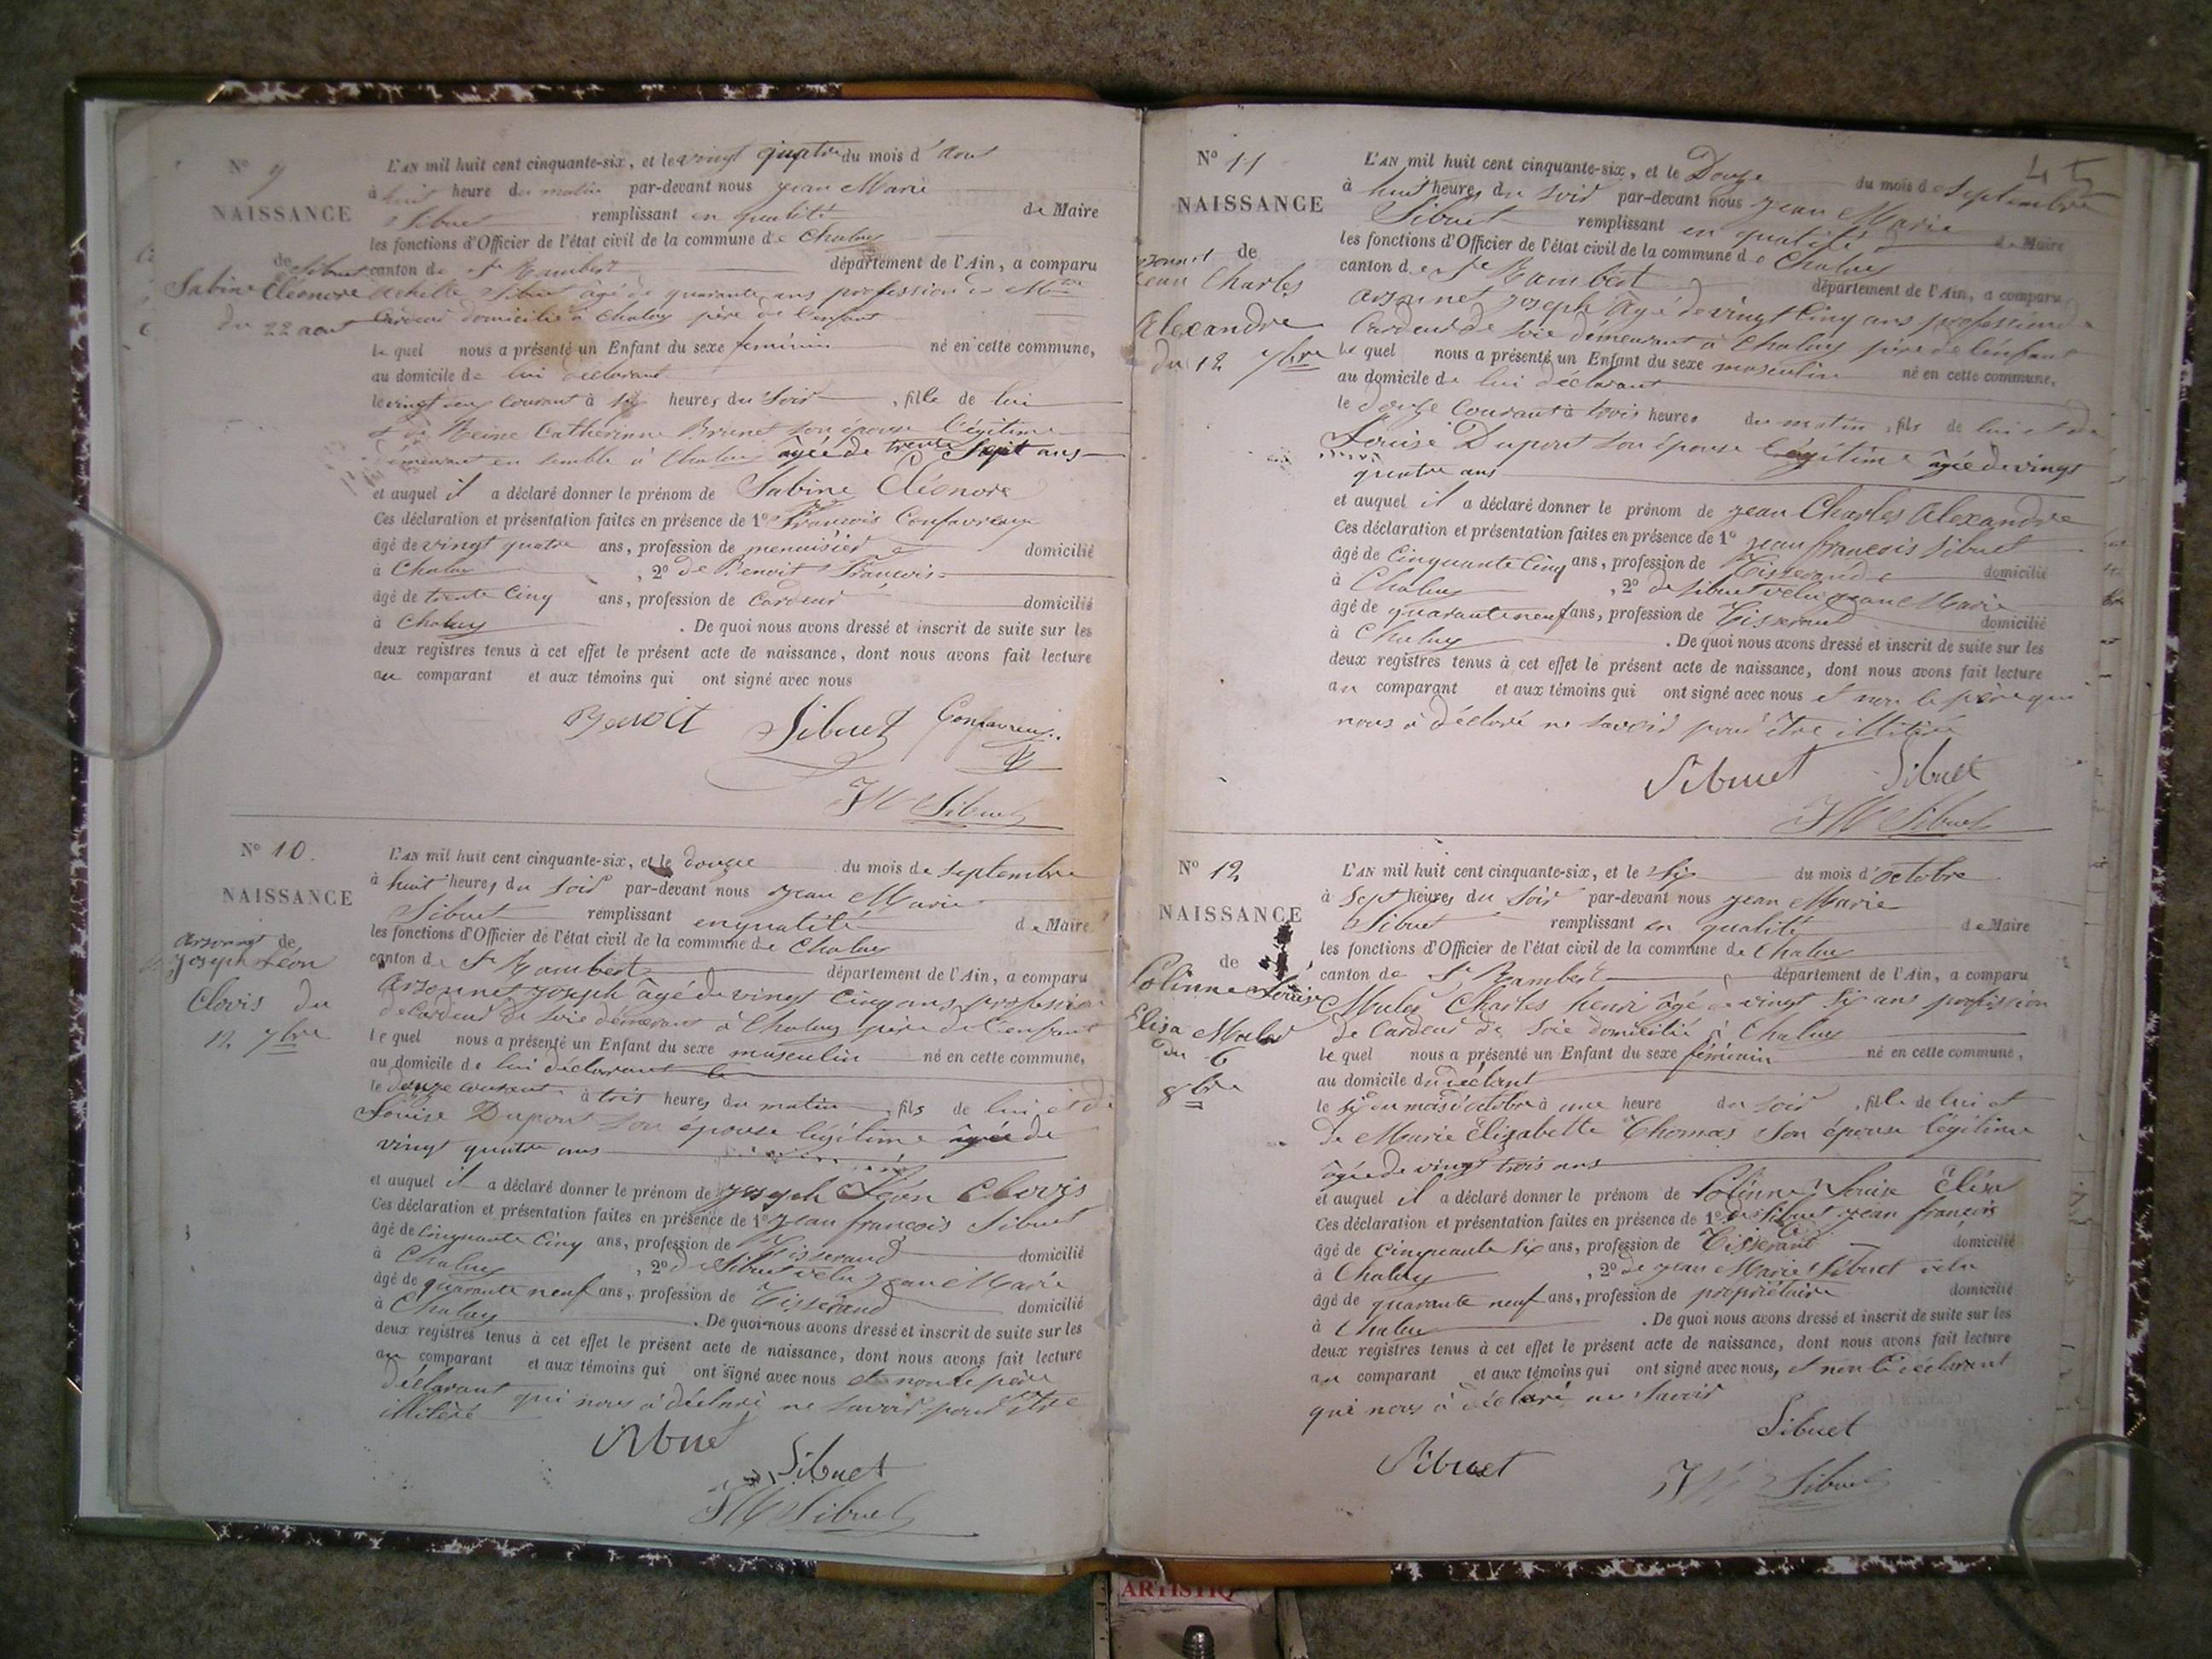 N° 9
NAISSANCE
de Sibuet
Sabine Eléonore
du 22 aout
L'AN mil huit cent cinquante-six, et le vingt quatre du mois d'aout
à huit heure du matin par-devant nous jean Marie
Sibuet remplissant en qualité de Maire
les fonctions d'Officier de l'état civil de la commune de Chaley
canton de St Rambert département de l'Ain, a comparu
Achille Sibuet âgé de quarante ans profession de
Cardeur domicilié à Chaley père de l'enfant
le quel nous a présenté un Enfant du sexe feminin né en cette commune,
au domicile de lui déclarant
le vingt deux courant à six heures du soir, fille de lui
et de Reine Catherinne Brunet son épouse légitime
demeurant en semble à Chaley âgée de trente sept ans
et auquel il a déclaré donner le prénom de Sabine Eléonore
Ces déclaration et présentation faites en présence de 1° Francois Confavreux
âgé de vingt quatre ans, profession de menuisier domicilié
à Chaley, 2° de Benoit Francois
âgé de trente cinq ans, profession de Cardeur domicilié
à Chaley. De quoi nous avons dressé et inscrit de suite sur les
deux registres tenus à cet effet le présent acte de naissance, dont nous avons fait lecture
au comparant et aux témoins qui ont signé avec nous
Benoit Sibuet Confavreux
JM Sibuet
N° 10.
NAISSANCE
de
Arsonnet
Joseph Léon
Clovis du
12 7bre
L'AN mil huit cent cinquante-six, et le douze du mois de septembre
à huit heures du soir par-devant nous jean Marie
Sibuet remplissant en qualité de Maire
les fonctions d'Officier de l'état civil de la commune de Chaley
canton de St Rambert département de l'Ain, a comparu
Arsonnet joseph âgé de vingt cinq ans profession
de Cardeur de soie demeurant à Chaley père de l'enfant
le quel nous a présenté un Enfant du sexe masculin né en cette commune,
au domicile de lui déclarant
le douze courant à trois heures du matin, fils de lui et de
Louise Dupont son épouse légitime âgée de
vingt quatre ans
et auquel il a déclaré donner le prénom de joseph Léon Clovis
Ces déclaration et présentation faites en présence de 1° jean francois Sibuet
âgé de cinquante cinq ans, profession de Tisserand domicilié
à Chaley, 2° de Sibuet velu jean Marie
âgé de quarante neuf ans, profession de Tisserand domicilié
à Chaley. De quoi nous avons dressé et inscrit de suite sur les
deux registres tenus à cet effet le présent acte de naissance, dont nous avons fait lecture
au comparant et aux témoins qui ont signé avec nous et non le père
déclarant qui nous à déclaré ne savoir pour être
illitéré
Sibuet
Sibuet
JM Sibuet
45
N° 11
NAISSANCE
de
Arsonnet
jean Charles
Alexandre
du 12 7bre
L'AN mil huit cent cinquante-six, et le Douze du mois de Septembre
à huit heures du soir par-devant nous jean Marie
Sibuet remplissant en qualité de Maire
les fonctions d'Officier de l'état civil de la commune de Chaley
canton de St Rambert département de l'Ain, a comparu
Arsonnet joseph âgé de vingt cinq ans profession de
Cardeur de soie demeurant à Chaley père de l'enfant
le quel nous a présenté un Enfant du sexe masculin né en cette commune,
au domicile de lui déclarant
le douze courant à trois heures du matin, fils de lui et de
Louise Dupont son épouse légitime âgée de vingt
quatre ans
et auquel il a déclaré donner le prénom de jean Charles Alexandre
Ces déclaration et présentation faites en présence de 1° jean francois Sibuet
âgé de cinquante cinq ans, profession de Tisserand domicilié
à Chaley, 2° de Sibuet velu jean Marie
âgé de quarante neuf ans, profession de Tisserand domicilié
à Chaley. De quoi nous avons dressé et inscrit de suite sur les
deux registres tenus à cet effet le présent acte de naissance, dont nous avons fait lecture
au comparant et aux témoins qui ont signé avec nous et non le père qui
nous à déclaré ne savoir pour être illitéré
Sibuet Sibuet
JM Sibuet
N° 12
NAISSANCE
de
Poline Louise
Elisa Mulet
du 6
8bre
L'AN mil huit cent cinquante-six, et le six du mois d'octobre
à Sept heures du soir par-devant nous jean Marie
Sibuet remplissant en qualité de Maire
les fonctions d'Officier de l'état civil de la commune de Chaley
canton de St Rambert département de l'Ain, a comparu
Mulet Charles henri âgé de vingt six ans profission
de Cardeur de soie domicilié à Chaley
le quel nous a présenté un Enfant du sexe féminin né en cette commune,
au domicile du déclarant
le six du mois d'octobre à une heure du soir, fille de lui et
de Marie Elizabette Thomas son épouse légitime
âgée de vingt trois ans
et auquel il a déclaré donner le prénom de Polinne Louise Elisa
Ces déclaration et présentation faites en présence de 1° de Sibuet jean francois
âgé de cinqueante six ans, profession de Tisserant domicilié
à Chaley, 2° de jean Marie Sibuet velu
âgé de quarante neuf ans, profession de propriétaire domicilié
à Chaley. De quoi nous avons dressé et inscrit de suite sur les
deux registres tenus à cet effet le présent acte de naissance, dont nous avons fait lecture
au comparant et aux témoins qui ont signé avec nous, et non le déclarant
qui nous à déclaré ne savoir
Sibuet
Sibuet JM Sibuet
ARTISTIQ